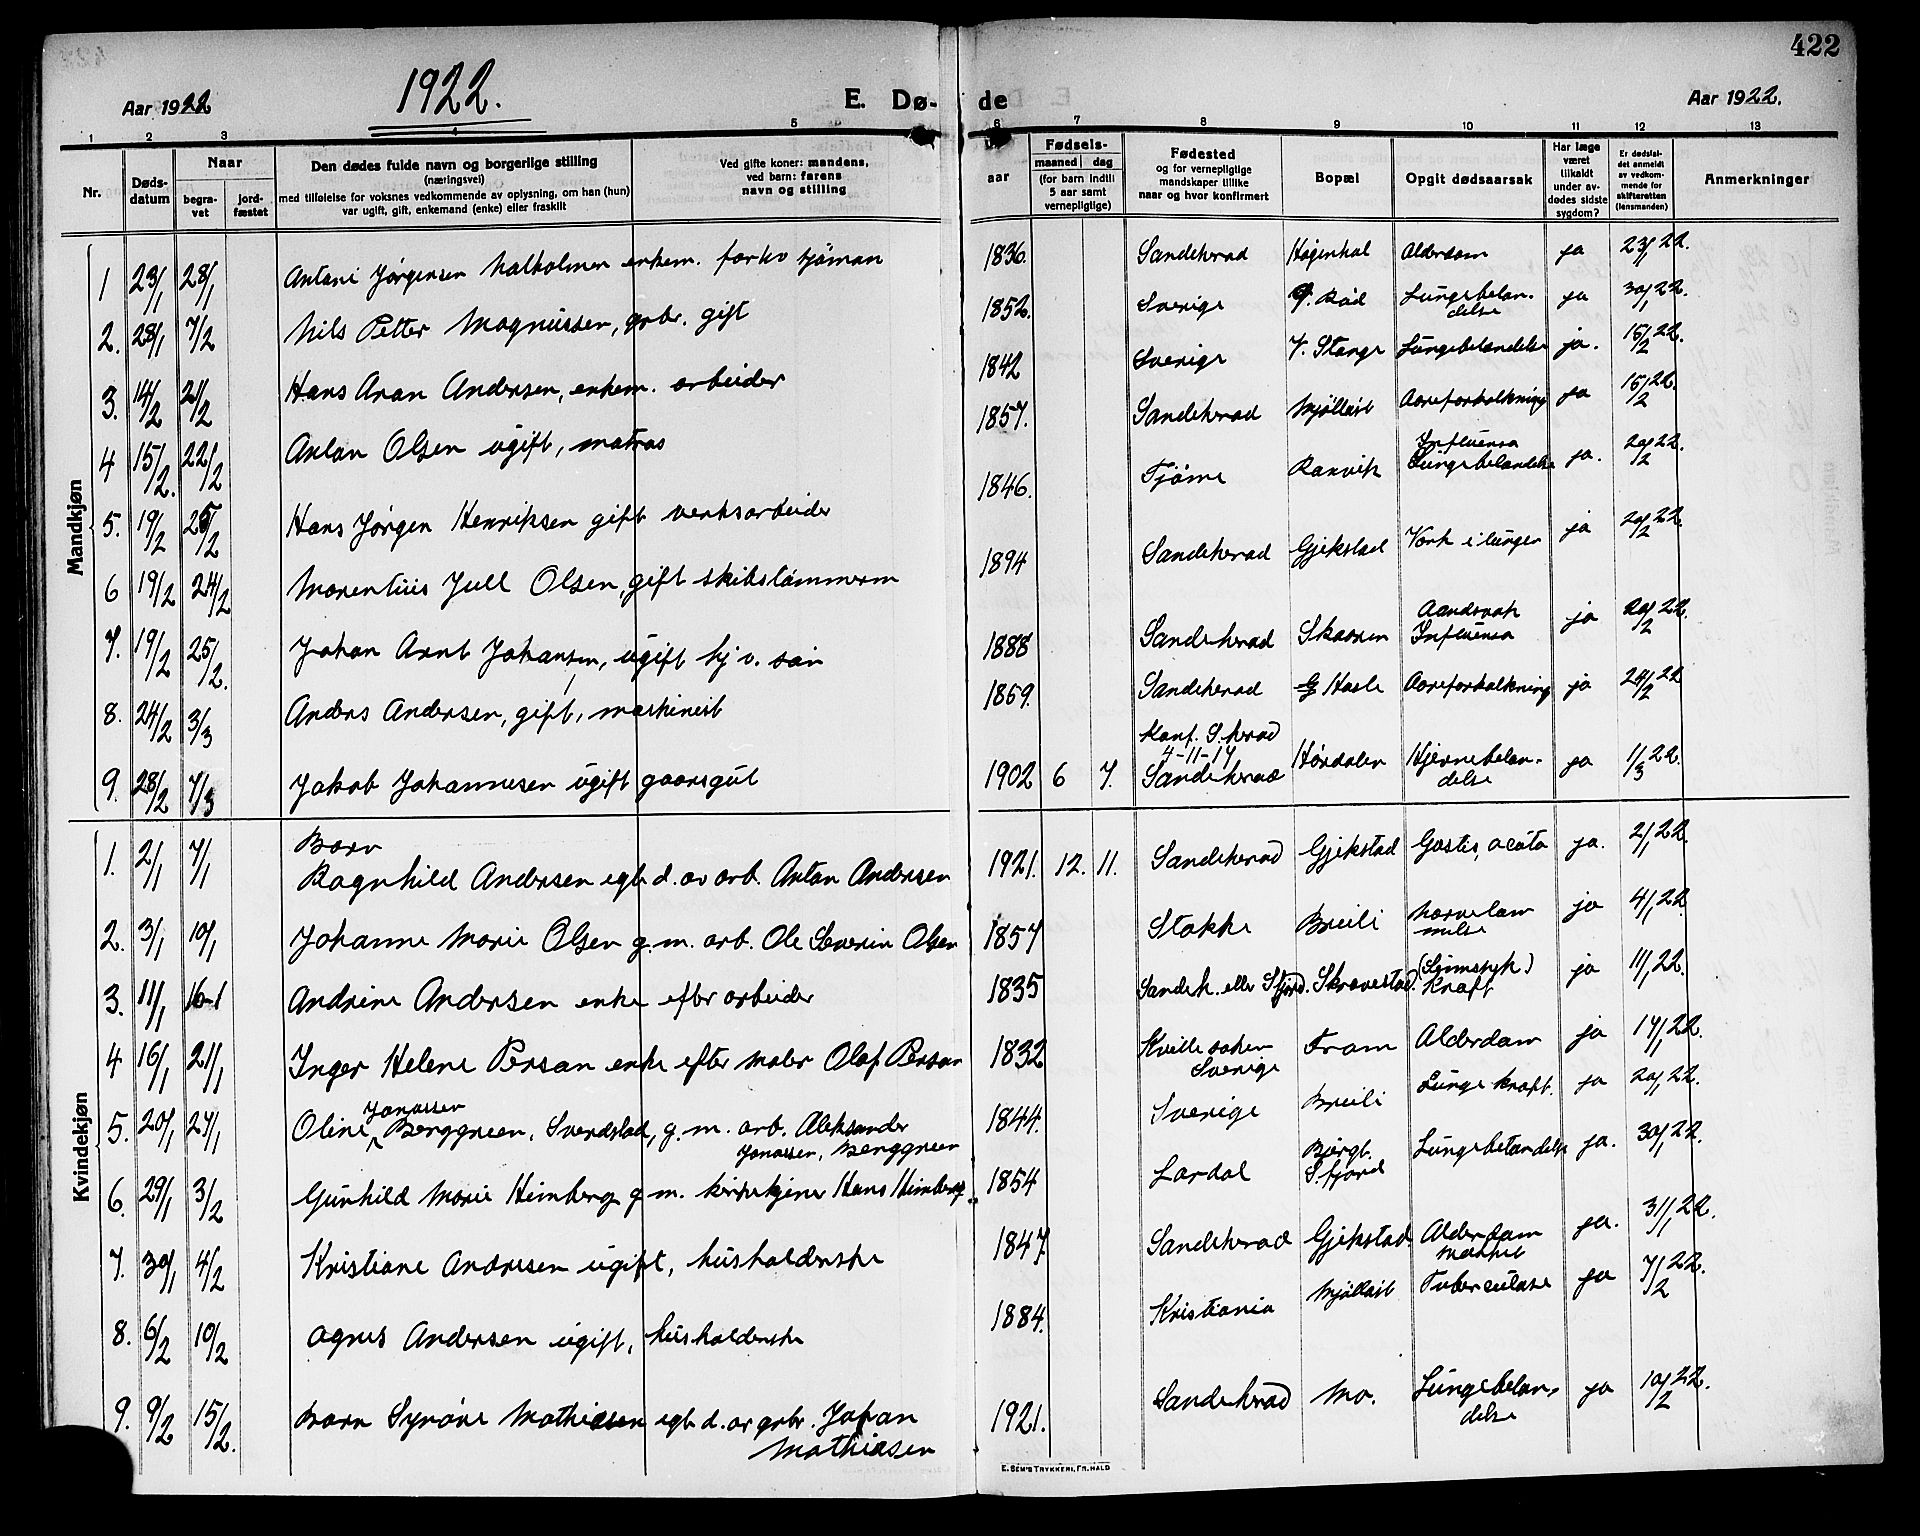 422
Aar 1922
1922.
E. Dø-
de
Aar 1922.
1 2 3 4 5 6 7 8 9 10 11 12 13
Nr.
Døds-
datum
Naar
begra-
vet
jord-
fæstet
Den dødes fulde navn og borgerlige stilling
(næringsvei)
med tilføielse for voksnes vedkommende av oplysning, om han (hun)
var ugift, gift, enkemand (enke) eller fraskilt
Ved gifte koner: mandens,
ved barn: farens
navn og stilling
aar
Fødsels-
maaned dag
(for barn indtil
5 aar samt
vernepligtige)
Fødested
og for vernepligtige
mandskaper tillike
naar og hvor konfirmert
Bopæl
Opgit dødsaarsak
Har læge
været
tilkaldt
under av-
dødes sidste
sygdom?
Er dødsfal-
det anmeldt
av vedkom-
mende for
skifteretten
(lensmanden)
Anmerkninger
Mandkjøn
1 23/1 28/1 Antoni Jørgensen enkem. sjøman 1836. Sandeherad Alderdom ja 23/1 22.
2. 28/1 7/2 Nils Petter Magnussen, grbr. gift 1852. Sverige Lungebetændelse ja 30/1 22.
3. 14/2 21/2 Hans Aron Andersen, enkem. arbeider 1842 Sverige V. Stange Lungebetændelse ja. 15/2 22.
4 15/2. 22/2 Anton Olsen ugift, matros 1857. Sandeherad Aareforkalkning ja 15/2 22.
5. 19/2 25/2 Hans Jørgen Henriksen gift verksarbeider 1846. Tjøme Ranvik Influensa Lungebetændelse ja. 20/2 22.
6 19/2 24/2 Marentius Jull Olsen, gift skibstømmerm 1894 Sandeherad Gjekstad Verk i lunger ja 20/2 22.
7. 19/2 25/2. Johan Arnt Johansen, ugift hj v. 1888 Sandeherad Aandsvak Influensa ja 20/2 22.
8. 24/2 3/3 Anders Andersen, gift, maskinist 1869. Sandeherad Hasle Aareforkalkning ja 24/2 22
9. 28/2 7/3 Jakob Johannesen ugift gaarsgut 1902 6 7. Konf. S.herad 4-11-17 Sandeherad Hørdalen Hjernebetændelse ja 1/3 22.
Kvindekjøn
1. 2/1 7/1 Barn Ragnhild Andersen egb d. av arb. Anton Andersen 1921. 12. 11. Sandeherad Gjekstad ja. 2/1 22.
2. 3/1 10/1 Johanne Marie Olsen g. m. arb. Ole Severin Olsen 1857 Stokke Breili ja 4/1 22.
3. 11/1 16-1 Andrine Andersen enke efter arbeider 1835 Sandeh. eller Sfjord. Skravestad Kræft ja 11/1 22.
4 16/1 21/1 Inger Helene Persan enke efter maler Olaf Persan 1832 Kville soken Sverige Fram Alderdom ja 17/1 22.
5. 20/1 27/1 Oline Jonassen Berggreen, g. m. arb. Aleksander Jonassen, Berggreen 1844. Sverige Breili Lunge kræft. ja 20/1 22.
6. 29/1 3/2 Gunhild Marie Heimberg g. m. kirketjener Hans Heimberg 1854 Lardal Bjergt. S.fjord Lungebetændelse ja. 30/1 22.
7. 30/1 4/2 Kristiane Andresen ugift, husholderske 1847 Sandeherad Gjekstad Alderdom ja. 31/1 22.
8. 6/2 10/2 Agnes Andersen ugift, husholderske 1884. Kristiania Tuberculose ja 7/2 22.
9. 9/2 15/2. Barn Synøve Mathiesen egb d. av grbr. Johan Mathiesen 1921. Sandeherad Mo. Lungebetændelse ja 10/2 22.
E. SEM'S TRYKKERI, FR.HALD